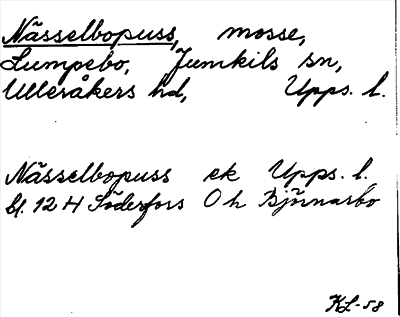 Nässelbopuss, mosse,
Lumpebo, Jumkils sn,
Ulleråkers hd, Upps. l.
Nässelbopuss ek Upps. l.
bl. 12 H Söderfors O h Björnarbo
KL-58